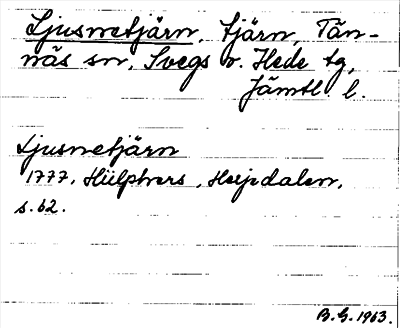 Ljusnetjärn, tjärn, Tän-
näs sn, Svegs o. Hede tg,
Jämtl l.
Ljusnetjärn
1777, Hülphers, Herjedalen,
s. 62.
B.G. 1963.